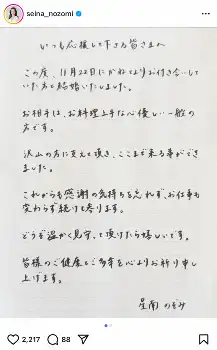 seina_nozomi
いつも応援して下さる皆さまへ
この度、11月22日にかねてよりお付き合いして
いた方と結婚いたしました。
お相手は、お料理上手な心優しい一般の
方です。
沢山の方に支えて頂き、ここまで来る事ができ
ました。
これからも感謝の気持ちを忘れず、お仕事も
変わらず続けて参ります。
どうぞ温かく見守って頂けたら嬉しいです。
皆様のご健康とご多幸を心よりお祈り申
し上げます。
星南 のぞみ
2,217
88